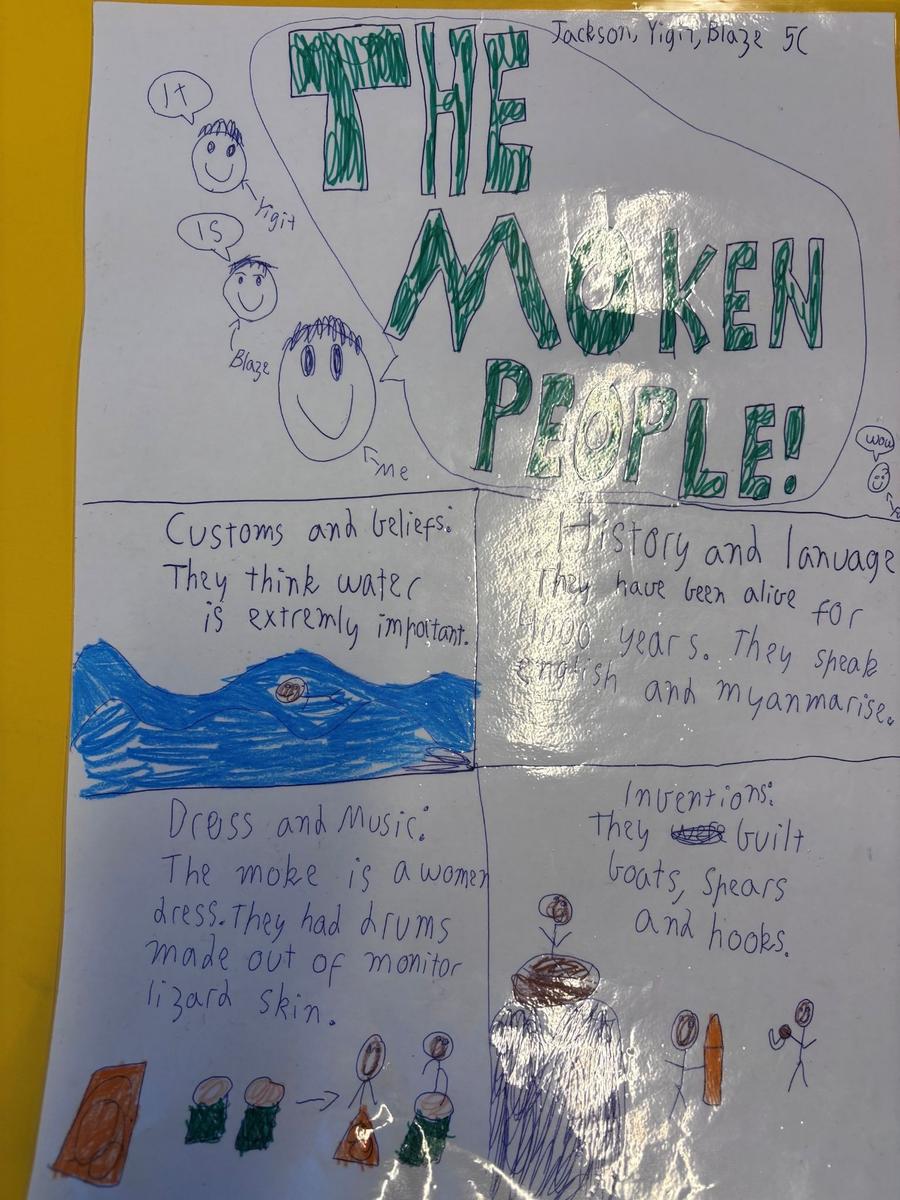 Jackson, Yigit, Blaze 5C
It
Yigit
IS
Blaze
THE
MOKEN
PEOPLE!
Me
wow
Customs and beliefs:
They think water
is extremly important.
History and lanuage
They have been alive for
4000 years. They speak
english and myanmarise.
Dress and Music:
The moke is a women
dress. They had drums
made out of monitor
lizard skin.
Inventions:
They built
boats, spears
and hooks.